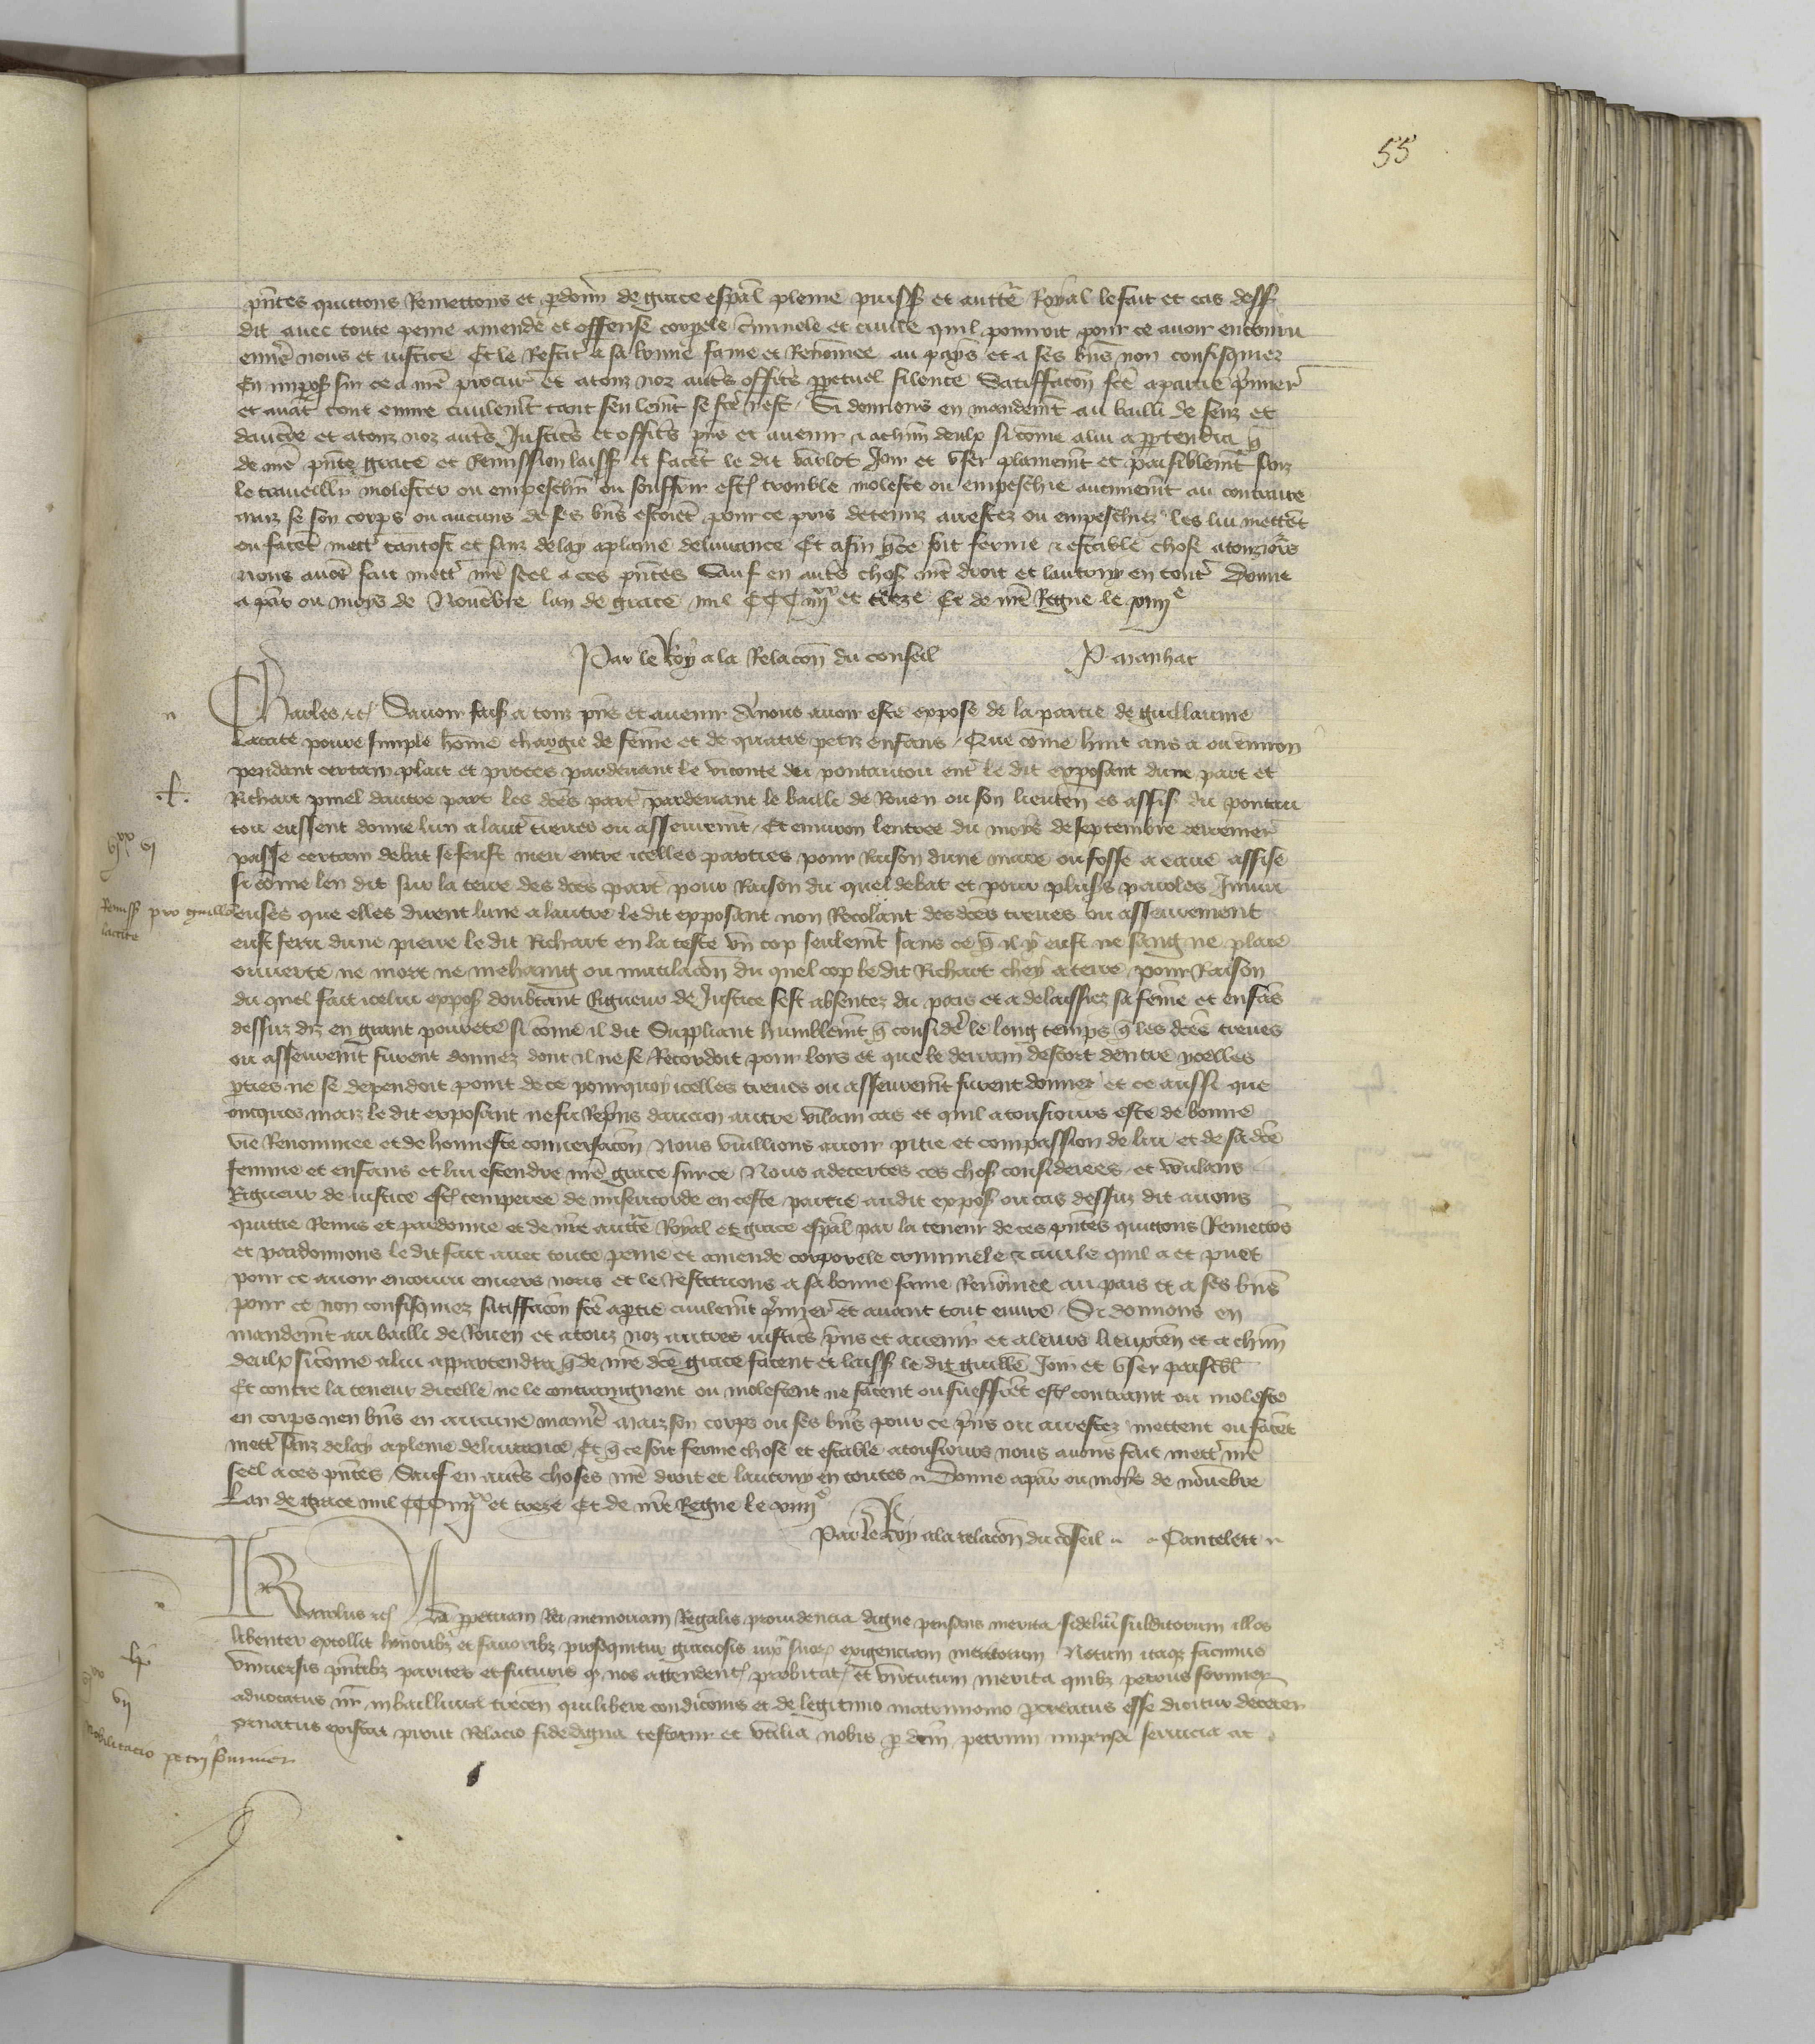 55
pñtes quittons Remettons et pdonñ de grace espãl pleine puiss et auttẽ Royal le fait et cas dess
dit avec toute peine amende et offense corpele c̃minele et civille quil pourroit pour ce avoir encouru
env̾s nous et justice Et le Restit a sa bonne fame et Renõmee au pays et a ses bñs non confisquiez
En impos sur ce a nr̃e procur̾ et a touz noz aut̾s offic̾s p̱petuel silence Satiffacõn fcẽ a partie p̾mier
et avãt tout euvre civilemt̃ tant seulemt̃ se fcẽ nest Si donnons en mandemt̃ au bailli de Senz et
daucerre et a touz noz aut̾s Justic̾s et offic̾s p̃ns et avenir & a chũn deulx si cõme a lui app̱tendra q̃
de nr̃e p̃nte grace et Remission laiss et facẽt le dit varlot Joir et user plainemt̃ et paisiblemt̃ sanz
le traveillir molester ou empeschr̃ ou souffrir estr̃ trouble moleste ou empeschie aucunemt̃ au contraire
maiz se son corps ou aucuns de ses bñs estoiẽt pour ce pris detenuz arrestez ou empeschiez les lui mettẽt
ou facẽt mett̾ tantost et sanz delay a plaine delivrance Et afin q̃ ce soit ferme & estable chose a touzio̾s
nous avõs fait mett̾ nr̃e seel a ces p̃ntes Sauf en aut̾s chos nr̃e droit et lautruy en tout̾ Donne
a pār ou moys de Novẽbre lan de grace mil CCC iiijxx et treze Et de nr̃e Regne le xiiije
Par le Roy a la Relacõn du conseil P. manhac
Charles &c̃ Savoir fais̃ a touz p̃ns et avenir A nous avoir este expose de la partie de guillaume
Lacate povre simple hõme chargie de fẽme et de quatre petiz enfans Que cõme huit ans a ou environ
pendant certain plait et proces pardevant le viconte du pontautou ent̾ le dit exposant dune part et
Richart pinel dautre part les dc̃es part̾ pardevant le bailli de Rouen ou son lieuteñ es assis̃ du pontau
tou eussent donne lun a laut̾ treves ou asseuremt̃ Et environ lentree du moys de septembre derrenier
passe certain debat se feust meu entre icelles parties pour Raison dune mare ou fosse a eaue assise
si cõme len dit sur la terre des dc̃es part̾ pour Raison du quel debat et pour plus̃s paroles Injuri
euses que elles dirent lune a lautre le dit exposant non Recolant des dc̃es treves ou asseurement
eust feru dune pierre le dit Richart en la teste un cop seulemt̃ sans ce q̃ il y eust ne sang ne plaie
ouverte ne mort ne mehaing ou mutilacõn du quel cop le dit Richart chey a terre pour Raison
du quel fait icelui expos̃ doubtant Rigueur de Justice sest absentez du pais et a delaissiez sa fẽme et enfãs
dessuz diz en grant povrete si cõme il dit Suppliant humblemt̃ q̃ consider̾ le long temps q̃ les dc̃es treves
ou asseuremt̃ furent donnez dont il ne se Recordoit pour lors et que le derrain descort dentre ycelles
p̱ties ne se dependoit point de ce pourquoy icelles treves ou asseuremt̃ furent donnez et ce aussi que
oncques maiz le dit exposant ne fu Rep̾ns daucun autre vilain cas et quil a tousiours este de bonne
vie Renommee et de honneste conversacõn Nous vuillions avoir pitie et compassion de lui et de sa dc̃e
femme et enfans et lui estendre nr̃e grace sur ce Nous adecertes ces chos̃ considerees et voulans
Rigueur de iustice estr̃ temperee de misericorde en ceste partie au dit expos̃ ou cas dessuz dit avons
quittie Remis et pardonne et de nr̃e auttẽ Royal et grace espãl par la teneur de ces p̃ntes quittons Remettõs
et pardonnons le dit fait avec toute peine et amende corporele criminele & civile quil a et puet
pour ce avoir encouru envers nous et le Restituons a sa bonne fame Renõmee au pais & a ses bñs
pour ce non confisquiez satiffacõn fcẽ a p̱tie civilemt̃ p̾mier et avant tout euvre Si donnons en
mandemt̃ au bailli de Rouen et a touz noz autres iustic̾s p̃ns et avenir et a leurs lieuxteñ et a chũn
deulx si cõme a lui appartendra q̃ de nr̃e dc̃e grace facent et laiss̃ le dit guill̃e Joir et user paisibl̃
Et contre la teneur dicelle ne le contraingnent ou molestent ne facent ou sueffrẽt estr̃ contraint ou moleste
en corps nen bñs en aucune manier̾ maiz son corps ou ses bñs pour ce p̾ns ou arrestez mettent ou facẽt
mett̾ sanz delay a pleine delivrance Et q̃ ce soit ferme chose et estable a tousiours nous avons fait mett̾ nr̃e
seel a ces p̃ntes Sauf en aut̾s choses nr̃e droit et lautruy en toutes Donne a pār ou moys de novẽbre
Lan de grace mil CCC iiijxx et treze Et de nr̃e Regne le xiiijo
Par le Roy a la relacõn du cõseil Cantelett
vjxx vj
Remiss̃ pro guill̃o
lacate
Karolus &c̃ Ad p̱petuam Rei memoriam Regalis providencia digne pensans merita fideliũ subditorum illos
libenter extollit honorib; et favorib; prosequitur graciosis iuxta suor̃ exigenciam meritorum Notum itaq; facimus
universis p̃ntib; pariter et futuris q̃ nos attendent̃ probitat̃ et virtutum merita quib; petrus formier
advocatus nr̃ in bailliva trecen̄ qui libere condicõnis et de legitimo matrimonio p̱creatus esse dicitur decenter
ornatus existat prout Relacio fidedigna testatur et utilia nobis p̱ dc̃m petrum impensa servicia ac
vjxx
vij
Nobilitacio petri formier